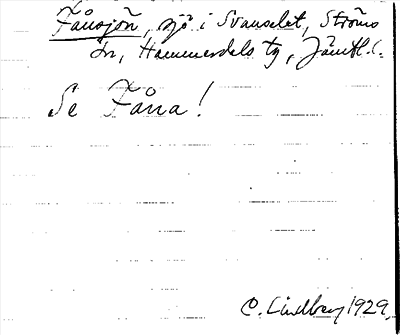 Fånsjön, sjö i Svanselet, Ströms
sn, Hammerdals tg, Jämtl.
Se Fåna!
C. Lindberg 1929.